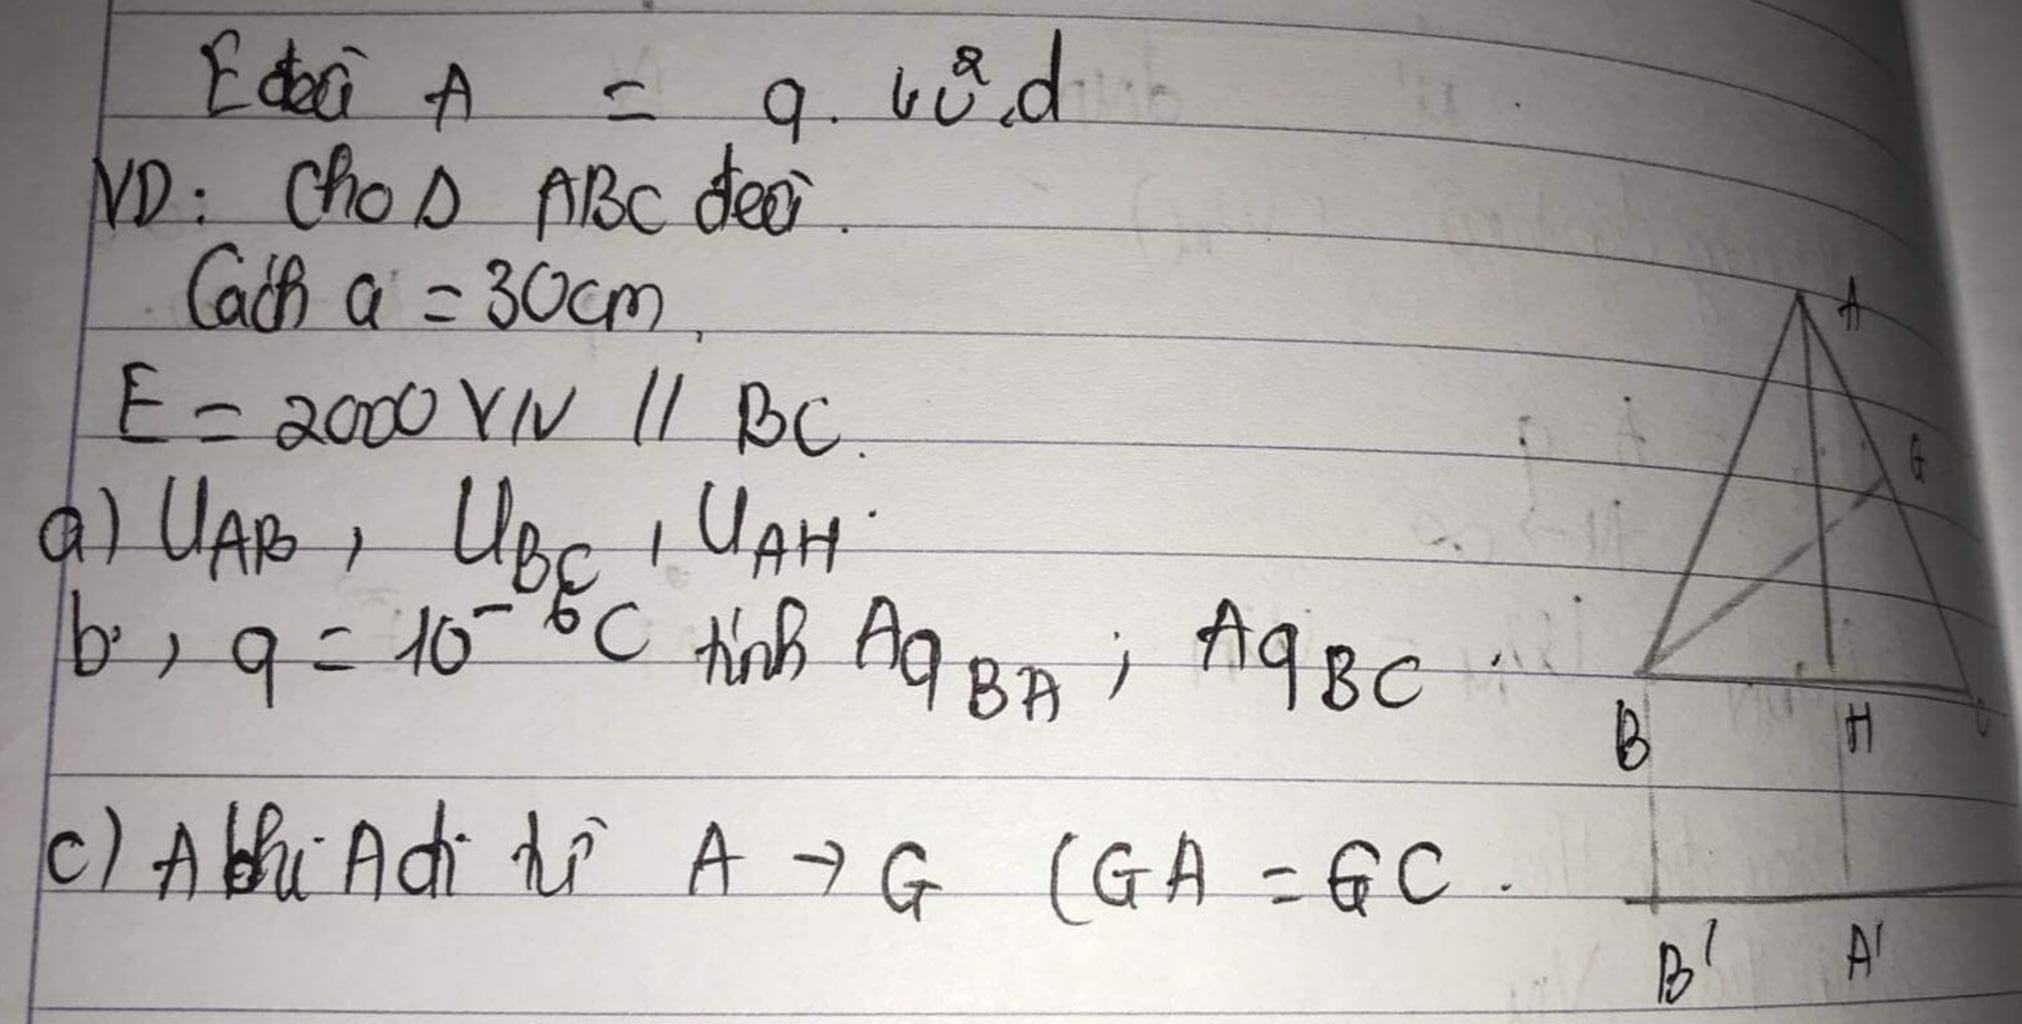 E đều A = q. .d
VD: Cho Δ ABC đều.
Cạch a = 30cm,
E = 2000 V/V // BC.
a) UAB, UBC, UAH.
b, q = 10⁻⁶C tính AqBA; AqBC.
c) A khi A di từ A → G (GA = GC.
A
G
B H C
B' A'